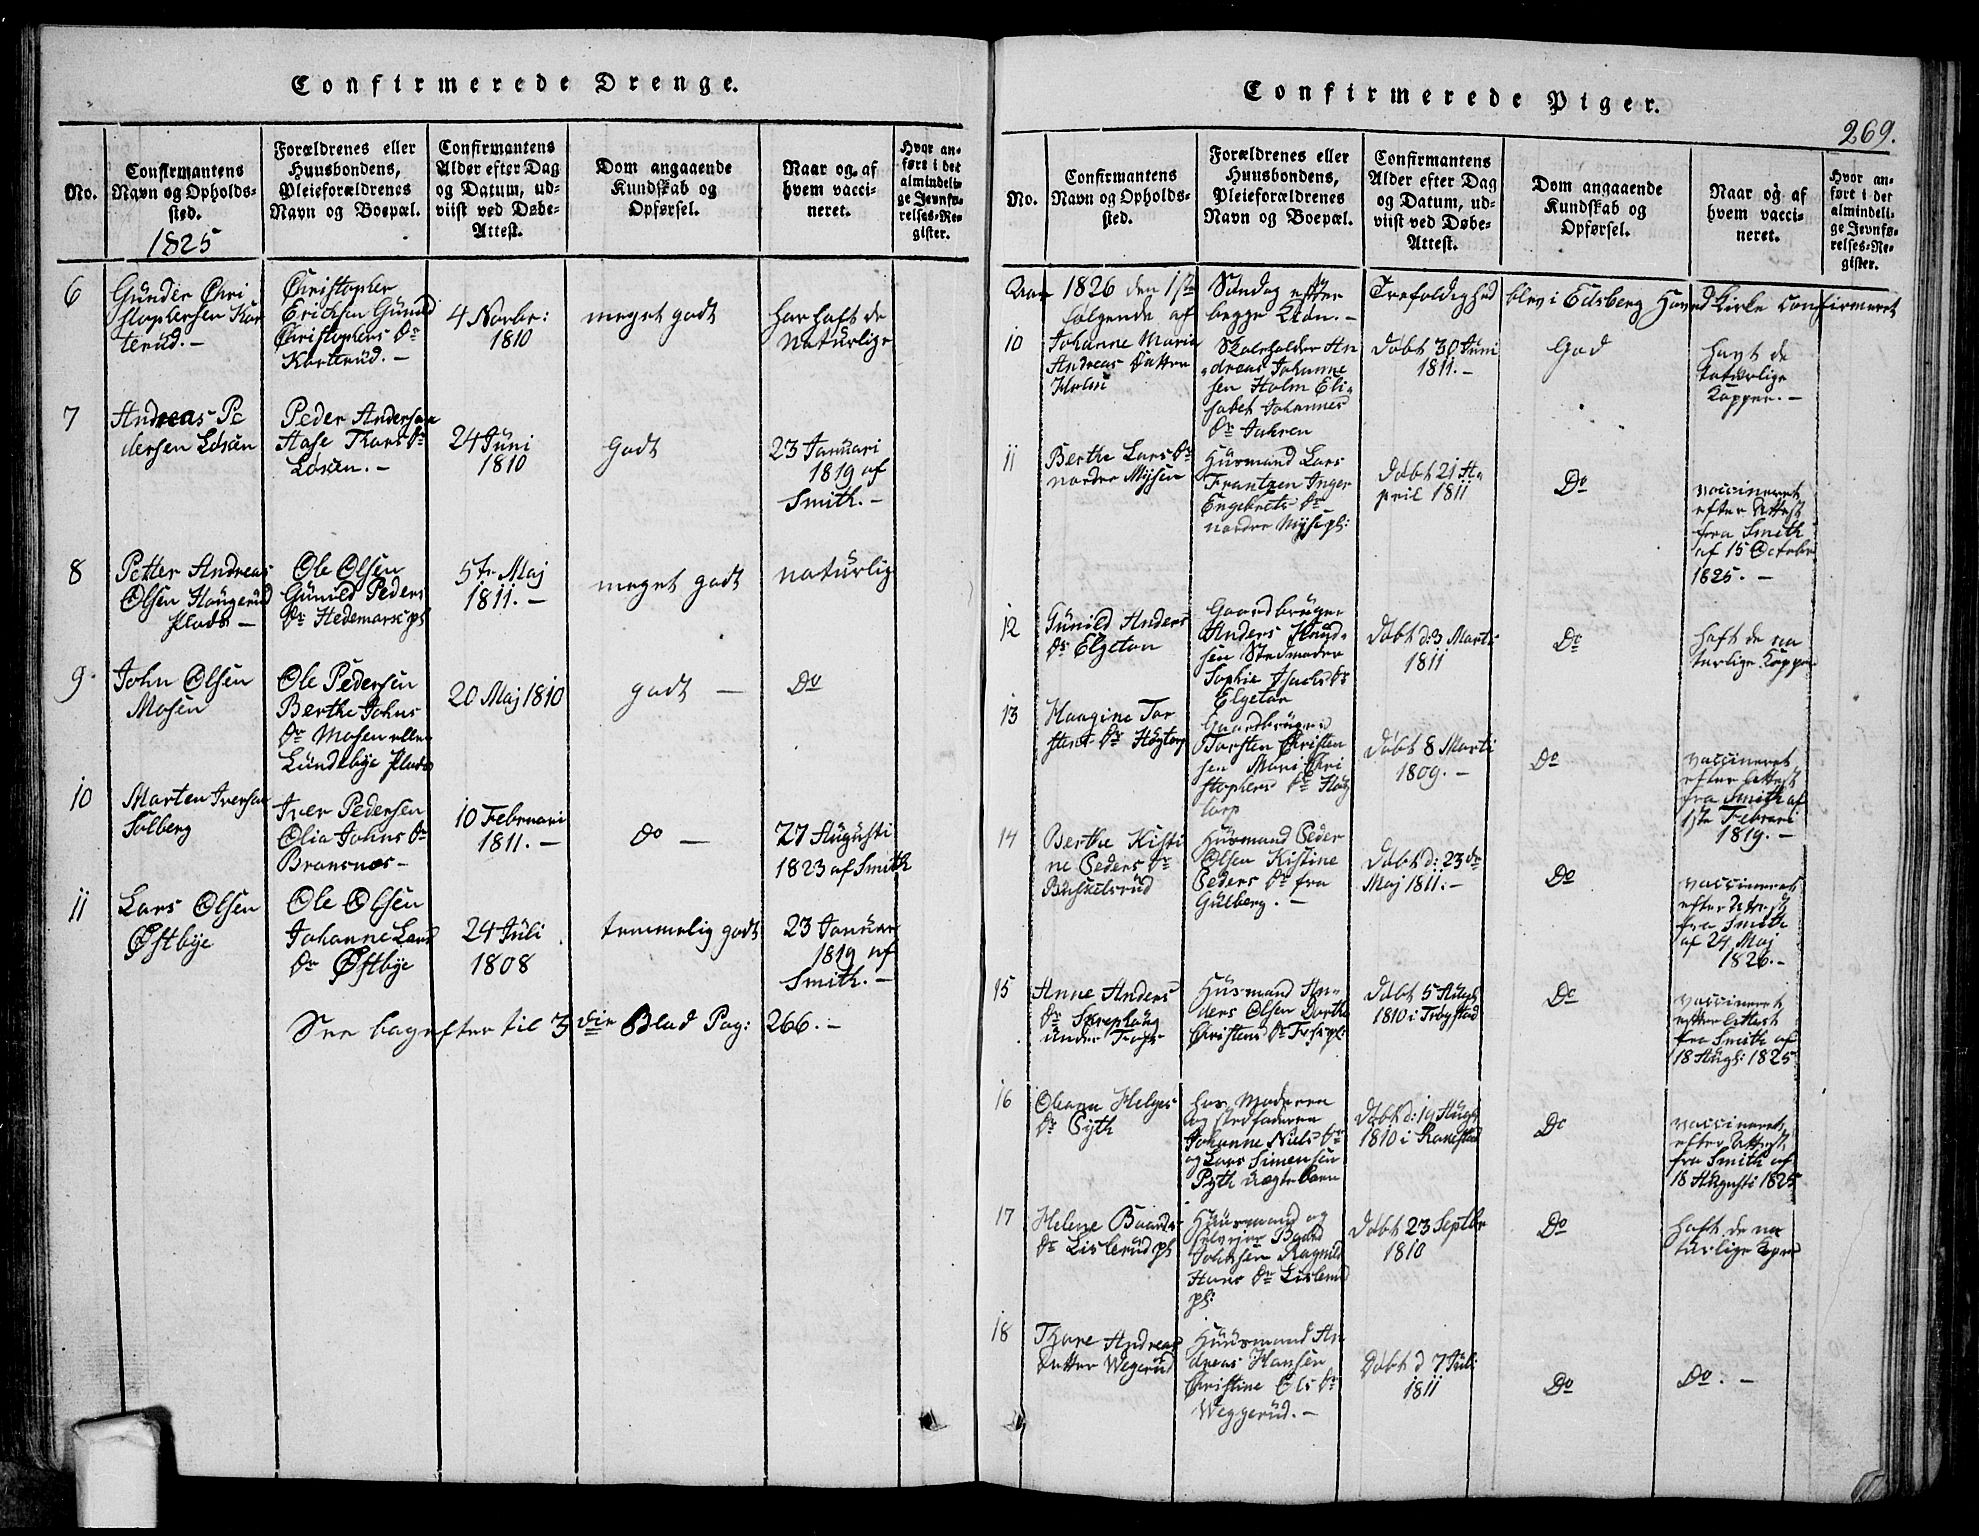 Confirmerede Drenge.
No.
Confirmantens
Navn og Opholds-
sted.
1825
Forældrenes eller
Huusbondens,
Pleieforældrenes
Navn og Boepæl.
Confirmantens
Alder efter Dag
og Datum, ud-
viist ved Døbe-
Attest.
Dom angaaende
Kundskab og
Opførsel.
Naar og af
hvem vacci-
neret.
Hvor an-
ført i det
almindeli-
ge Jevnfø-
relses-Re-
gister.
6
Gunder Chri
stophersen Kar
terud.-
Christopher
Erichsen Gunild
Christophers Dr
Karterud.-
4 Novbr:
1810
meget godt
har haft de
Naturlige
7
Andreas Pe
dersen Løsen
Peder Andersen
Aase Thores Dr
Løsen.-
24 Juni
1810
Godt
23 Januari
1819 af
Smith.-
8
Petter Andreas
Olsen Haugerud
Plads-
Ole Olsen
Gunild Peders
Dr Hedemark pl
5te Maj
1811.-
meget godt
naturlig
9.
John Olsen
Mosen
Ole Pedersen
Berthe Johns
Dr Mosen eller
Lundebye Plads
20 Maj 1810
godt -
Do
10
Marten Iversen
Solberg
Iver Pedersen
Olia Johns Dr
Bransnæs-
10 Februari
1811.-
Do -
27 Augusti
1823 af Smith
11
Lars Olsen
Østbye
Ole Olsen
Johanne Lars
Dr Østbye
24 Juli
1808
temmelig godt
23 Januar
1819 af
Smith.-
See bagefter til 3die Blad Pag: 266.-
Confirmerede Piger.
269.
No.
Confirmantens
Navn og Opholds-
sted.
Forældrenes eller
Huusbondens,
Pleieforældrenes
Navn og Boepæl.
Confirmantens
Alder efter Dag
og Datum, ud-
viist ved Døbe-
Attest.
Dom angaaende
Kundskab og
Opførsel.
Naar og af
hvem vacci-
neret.
Hvor an-
ført i det
almindeli-
ge Jevnfø-
relses-Re-
gister.
Aar 1826 den 1ste Søndag efter Trefoldighed blev i Edsberg Hovedkirke confirmeret
følgende af begge Kiøn.-
10
Johanne Maria
Andreas Datter
Holm
Skoleholder An
dreas Johanne
sen Holm Eli
sabet Johannes
Dr Jahren
Døbt 30 Juni
1811.-
God
havt de
naturlige
Kopper.-
11
Berthe Lars Dr
nordre Mysen
Husmand Lars
Frantzen Inger
Engebrets Dr
nordre Myse pl:
Døbt 21 A-
pril 1811
Do
vaccineret
efter Attest
fra Smith
af 15 October
1825.-
12
Gunild Anders
Dr Elgetan
Gaardbruger
Anders Knud-
sen Stedmoder
Sophie Isachs Dr
Elgetan
Døbt d: 3 Marti
1811
Do
haft de na
turlige Kopper
13
Haagine Tor
stens Dr Høytorp
Gaardbruger
Torsten Christen
sen Mari Chri
stophers Dr Høy
torp
Døbt 8 Marti
1809.-
Do
vaccineret
efter Attest
fra Smith af
1ste Februari
1819.-
14
Berthe Kisti
ne Peders Dr
Buskelsrud
Husmand Peder
Olsen Kistine
Peders Dr fra
Gulberg.-
Døbt d: 23de
Maj 1811.-
Do
vaccineret
efter Attest
fra Smith
af 24 Maj
1826.-
15
Anne Anders
Dr
under
Husmand An-
ders Olsen Dorthe
Christens Dr
Døbt 5 Augs
1810 i Trøgstad
Do
vaccineret
efter Attest
fra Smith af
18 Augs: 1825
16
Oleane Helges
Dr Pyth
hos Moderen
og stedfaderen
Johanne Niels Dr
og Lars Simensen
Pyth uægte Barn
Døbt d: 19 Augs
1810 i Rakestad
Do
vaccineret
efter Attest
fra Smith af
18 Augusti 1825
17
Helene Baards
Dr Lislerud pl
Huusmand og
Baard
Ragnild
Hans Dr Lislerud
pl:
Døbt 23 Septbr
1810
Do
haft de na
turlige Koper
18
Thore Andreas
Datter Wegerud
Huusmand An
dreas Hansen
Christine Ols Dr
Weggerud.-
Døbt d 7 Juli
1811
Do
Do.-